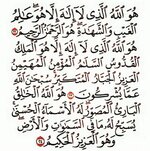 هُوَ اللَّهُ الَّذِي لَا إِلَٰهَ إِلَّا هُوَ عَٰلِمُ
الْغَيْبِ وَالشَّهَٰدَةِ هُوَ الرَّحْمَٰنُ الرَّحِيمُ ۝٢٢
هُوَ اللَّهُ الَّذِي لَا إِلَٰهَ إِلَّا هُوَ الْمَلِكُ
الْقُدُّوسُ السَّلَٰمُ الْمُؤْمِنُ الْمُهَيْمِنُ
الْعَزِيزُ الْجَبَّارُ الْمُتَكَبِّرُ سُبْحَٰنَ اللَّهِ
عَمَّا يُشْرِكُونَ ۝٢٣ هُوَ اللَّهُ الْخَٰلِقُ
الْبَارِئُ الْمُصَوِّرُ لَهُ الْأَسْمَاءُ الْحُسْنَىٰ
يُسَبِّحُ لَهُ مَا فِي السَّمَٰوَٰتِ وَالْأَرْضِ
وَهُوَ الْعَزِيزُ الْحَكِيمُ ۝٢٤